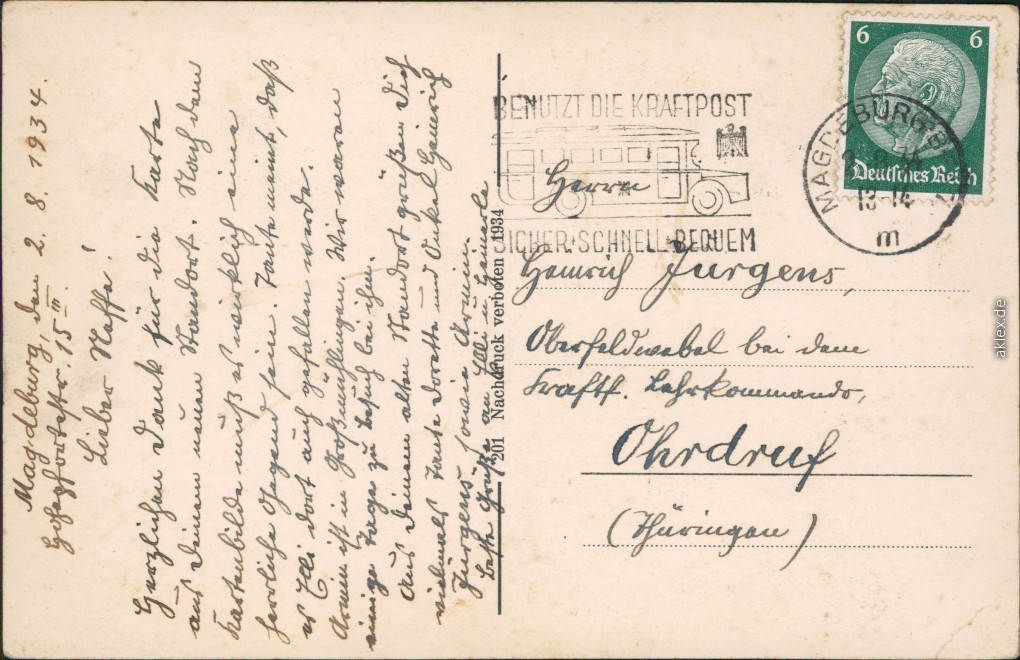 Magdeburg, den 2. 8. 1934.
Hohepfortestr. 15 III.
Lieber Neffe!
Herzlichen Dank für die Karte
aus Deinem neuen Standort. Nach dem
Kartenbilde muß es wirklich eine
herrliche Gegend sein. Tante meint, daß
es Elli dort auch gefallen werde.
Armin ist in Großmühlingen. Wir waren
einige Tage zu Besuch bei ihm.
Aus Deinem alten Standort grüßen Dich
vielmals Tante Dorette und Onkel Heinrich
Jürgens sowie Armin.
Beste Grüße an Elli u Heinerle
201 Nachdruck verboten 1934
BENUTZT DIE KRAFTPOST
SICHER + SCHNELL + BEQUEM
6 6
Deutsches Reich
MAGDEBURG
13-14
m
Herrn
Heinrich Jürgens,
Oberfeldwebel bei dem
Kraftf. Lehrkommando,
Ohrdruf
(Thüringen)
aklex.de